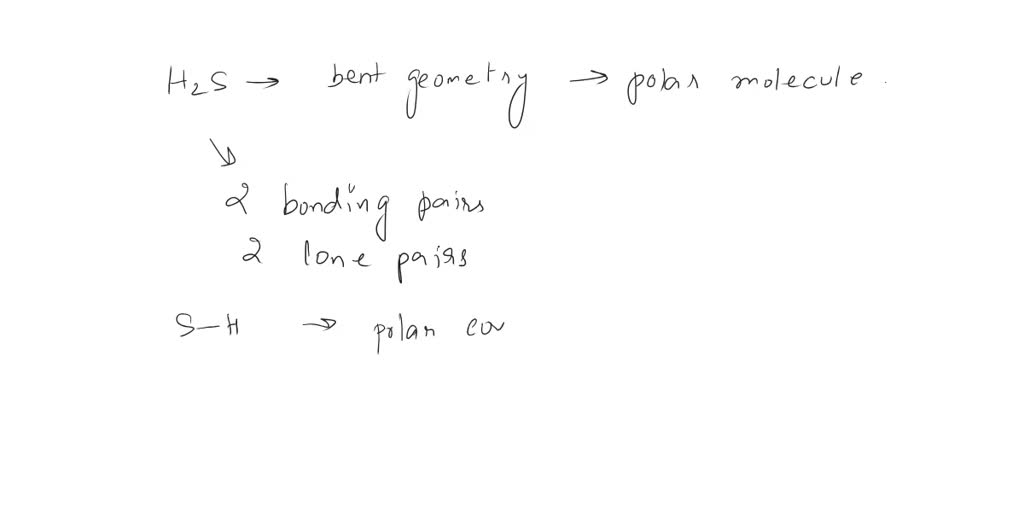 H₂S → bent geometry → polar molecule.
↘
2 bonding pairs
2 lone pairs
S-H → polar cov